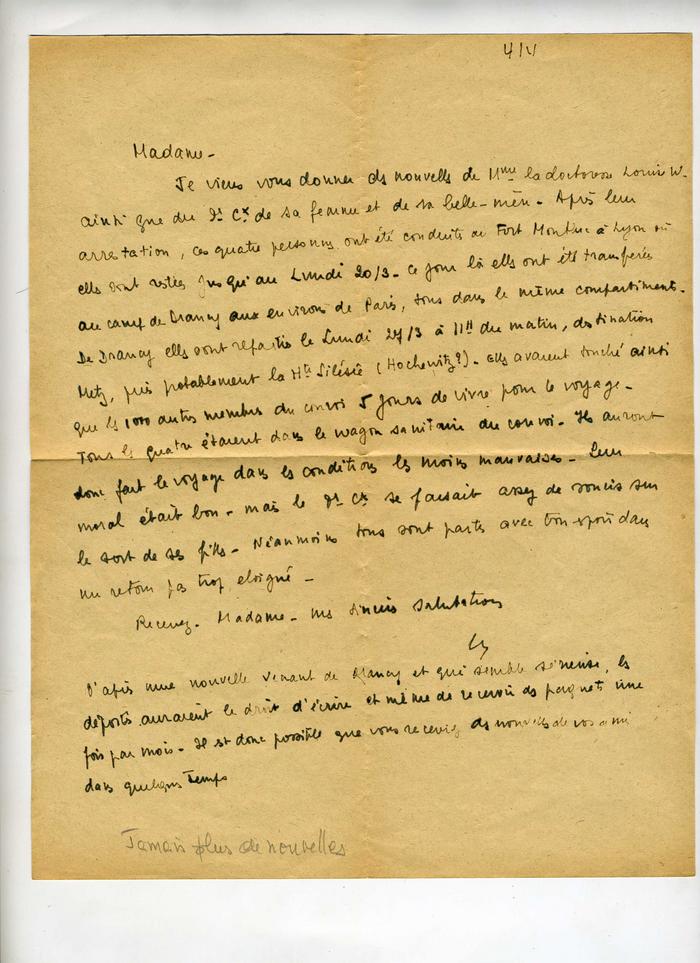 4/V
Madame -
Je viens vous donner des nouvelles de Mme la doctoresse Louise W.
ainsi que du Dr Cx de sa femme et de sa belle-mère - Après leur
arrestation, ces quatre personnes ont été conduites au Fort Montluc à Lyon où
elles sont restées jusqu'au Lundi 20/3 - ce jour là elles ont été transférées
au camp de Drancy aux environs de Paris, tous dans le même compartiment.
De Drancy elles sont reparties le Lundi 27/3 à 11H du matin, destination
Metz, puis probablement la Hte Silésie (Hochewitz?) - elles avaient touché ainsi
que les 1000 autres membres du convoi 5 jours de vivre pour le voyage -
Tous les quatre étaient dans le wagon sanitaire du convoi - Ils auront
donc fait le voyage dans les conditions les moins mauvaises - Leur
moral était bon - mais le Dr Cx se faisait assez de soucis sur
le sort de ses fils - Néanmoins tous sont partis avec bon espoir dans
un retour pas trop eloigné -
Recevez - Madame - mes sincères salutations
D'après une nouvelle venant de Drancy et qui semble sérieuse, les
déportés auraient le droit d'écrire et même de recevoir des paquets une
fois par mois - Il est donc possible que vous receviez des nouvelles de vos amis
dans quelques Temps
Jamais plus de nouvelles